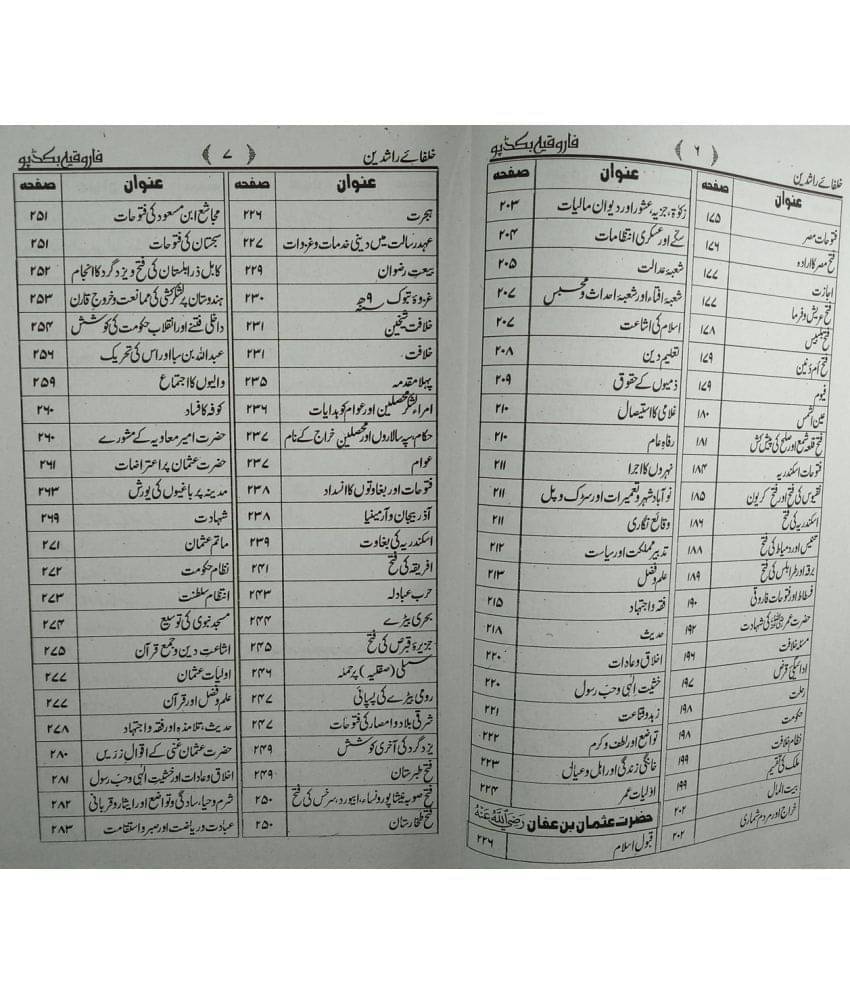 خلفائے راشدین ﴿ ۶ ﴾ فاروقیہ بکڈپو
عنوان صفحہ
فتوحات مصر ۱۷۵
فتح مصر کا ارادہ ۱۷۶
اجازت ۱۷۷
فتح عریش و فرما ۱۷۷
فتح بلبیس ۱۷۸
فتح ام دنین ۱۷۹
فیوم ۱۷۹
عین الشمس ۱۸۰
فتح قلعہ شمع اور صلح کی پیش کش ۱۸۱
فتوحات اسکندریہ ۱۸۴
نقیوس کی فتح اور فتح کریون ۱۸۵
اسکندریہ کی فتح ۱۸۶
اور دمیاط کی فتح ۱۸۸
برقہ اور طرابلس کی فتح ۱۸۹
فسطاط اور فتوحات فاروقی ۱۹۰
حضرت عمر رضی اللہ عنہ کی شہادت ۱۹۲
مسئلہ خلافت ۱۹۶
ادائیگی قرض ۱۹۷
رحلت ۱۹۸
حکومت ۱۹۸
نظام خلافت ۱۹۹
ملک کی تقسیم ۱۹۹
بیت المال ۲۰۲
خراج اور مردم شماری ۲۰۲
عنوان صفحہ
زکوٰۃ، جزیہ، عشور اور دیوان مالیات ۲۰۳
محکمے اور عسکری انتظامات ۲۰۴
شعبۂ عدالت ۲۰۵
شعبۂ افتاء اور شعبۂ احداث و محبس ۲۰۷
اسلام کی اشاعت ۲۰۷
تعلیم دین ۲۰۸
ذمیوں کے حقوق ۲۰۹
غلامی کا استیصال ۲۱۰
رفاہِ عام ۲۱۰
نہروں کا اجرا ۲۱۱
نو آباد شہر و تعمیرات اور سڑک و پل ۲۱۱
وقائع نگاری ۲۱۱
تدبیر مملکت اور سیاست ۲۱۲
علم و فضل ۲۱۳
فقہ و اجتہاد ۲۱۵
حدیث ۲۱۸
اخلاق و عادات ۲۲۰
خشیت الٰہی و حب رسول ۲۲۰
زہد و قناعت ۲۲۱
تواضع اور لطف و کرم ۲۲۲
خانگی زندگی اور اہل و عیال ۲۲۳
اولیات عمر ۲۲۴
حضرت عثمان بن عفان رضی اللہ عنہ
قبول اسلام ۲۲۶
خلفائے راشدین ﴿ ۷ ﴾ فاروقیہ بکڈپو
عنوان صفحہ
ہجرت ۲۲۶
عہد رسالت میں دینی خدمات و غزوات ۲۲۷
بیعتِ رضوان ۲۲۹
غزوۂ تبوک ۹ھ ۲۳۰
خلافت شیخین ۲۳۱
خلافت ۲۳۱
پہلا مقدمہ ۲۳۵
امراء لشکر محصلین اور عوام کو ہدایات ۲۳۶
حکام، سپہ سالاروں اور محصلین خراج کے نام ۲۳۷
عوام ۲۳۷
فتوحات اور بغاوتوں کا انسداد ۲۳۸
آذربیجان و آرمینیا ۲۳۸
اسکندریہ کی بغاوت ۲۳۹
افریقہ کی فتح ۲۴۱
حرب عبادلہ ۲۴۳
بحری بیڑے ۲۴۴
جزیرۂ قبرص کی فتح ۲۴۵
سسلی (صقلیہ) پر حملہ ۲۴۶
رومی بیڑے کی پسپائی ۲۴۷
شرقی بلاد و امصار کی فتوحات ۲۴۷
یزدگرد کی آخری کوشش ۲۴۹
فتح طبرستان ۲۴۹
فتح صوبہ نیشاپور و نساء، ابیورد، سرخس کی فتح ۲۵۰
فتح طخارستان ۲۵۰
عنوان صفحہ
مجاشع ابن مسعود کی فتوحات ۲۵۱
سجستان کی فتوحات ۲۵۱
کابل زابلستان کی فتح و یزدگرد کا انجام ۲۵۲
ہندوستان پر لشکر کشی کی ممانعت و خروج قارن ۲۵۳
داخلی فتنے اور انقلاب حکومت کی کوشش ۲۵۴
عبداللہ بن سبا اور اس کی تحریک ۲۵۶
والیوں کا اجتماع ۲۵۹
کوفہ کا فساد ۲۶۰
حضرت امیر معاویہ کے مشورے ۲۶۰
حضرت عثمان پر اعتراضات ۲۶۱
مدینہ پر باغیوں کی یورش ۲۶۳
شہادت ۲۶۹
ماتم عثمان ۲۷۱
نظام حکومت ۲۷۲
انتظام سلطنت ۲۷۳
مسجد نبوی کی توسیع ۲۷۴
اشاعتِ دین و جمع قرآن ۲۷۵
اولیات عثمان ۲۷۷
علم و فضل اور قرآن ۲۷۷
حدیث، تلامذہ اور فقہ و اجتہاد ۲۷۸
حضرت عثمان غنی کے اقوال زریں ۲۸۰
اخلاق و عادات اور خشیت الٰہی و حب رسول ۲۸۱
شرم و حیا، سادگی و تواضع اور ایثار و قربانی ۲۸۲
عبادت و ریاضت اور صبر و استقامت ۲۸۳